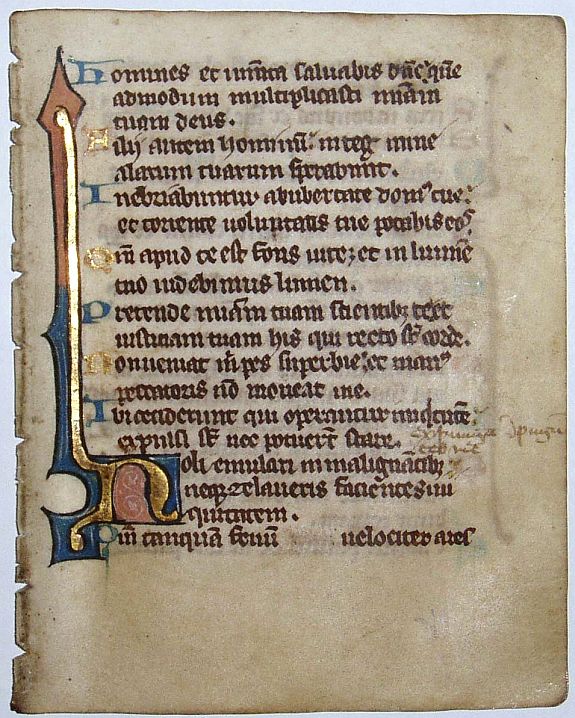 homines et iumēta saluabis dn̄e: quē
admodum multiplicasti mīam
tuam deus.
Filij autem hominū: in teg mine
alarum tuarum sperabunt.
Inebriabuntur ab ubertate domꝰ tue:
et torrente uoluptatis tue potabis eos.
Qm̄ apud te est fons uite: et in lumine
tuo uidebimus lumen.
Pretende mīam tuam scientibꝫ te: et
iusticiam tuam his qui recto st̄ corde.
Non ueniat m̄ pes superbie: et manꝰ
peccatoris nō moueat me.
Ibi ceciderunt qui operantur iniq̄tatē:
expulsi st̄ nec potuerūt stare.
Noli emulari in malignātibꝫ:
neqꝫ zelaueris facientes ini
quitatem.
Qm̄ tanquā fenū uelociter ares